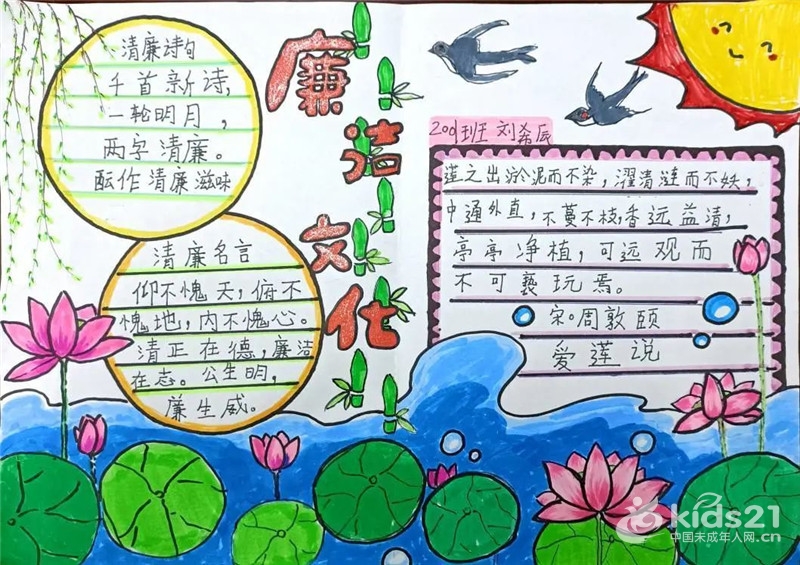 清廉诗句
千首新诗,
一轮明月,
两字清廉。
酝作清廉滋味
清廉名言
仰不愧天,俯不
愧地,内不愧心。
清正在德,廉洁
在志。公生明,
廉生威。
廉洁文化
2001班 刘希辰
莲之出淤泥而不染,濯清涟而不妖,
中通外直,不蔓不枝,香远益清,
亭亭净植,可远观而
不可亵玩焉。
宋。周敦颐
爱莲说
kids21
中国未成年人网.cn